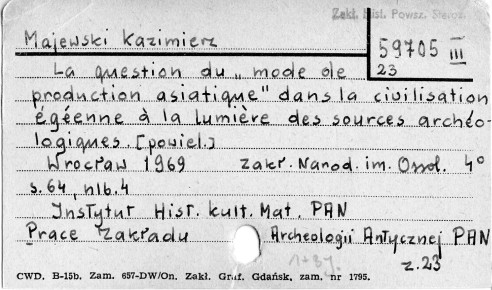 Zakł. Hist. Powsz. Staroż.
Majewski Kazimierz
59705 III
23
La question du „mode de
production asiatique" dans la civilisation
égéenne à la lumière des sources archéo-
logiques. [powiel.]
Wrocław 1969 Zakł. Narod. im. Ossol. 4°
s. 64, nlb. 4
Instytut Hist. kult. Mat. PAN
Prace Zakładu Archeologii Antycznej PAN
z. 23
CWD. B-15b. Zam. 657-DW/On. Zakł. Graf. Gdańsk, zam. nr 1795.